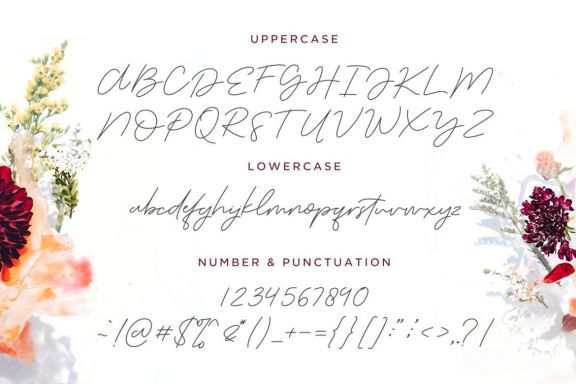 UPPERCASE
ABCDEFGHIJKLM
NOPQRSTUVWXYZ
LOWERCASE
abcdefghijklmnopqrstuvwxyz
NUMBER & PUNCTUATION
1234567890
~`!@#$%^&*()_+-={}[]:";'<>,.?/